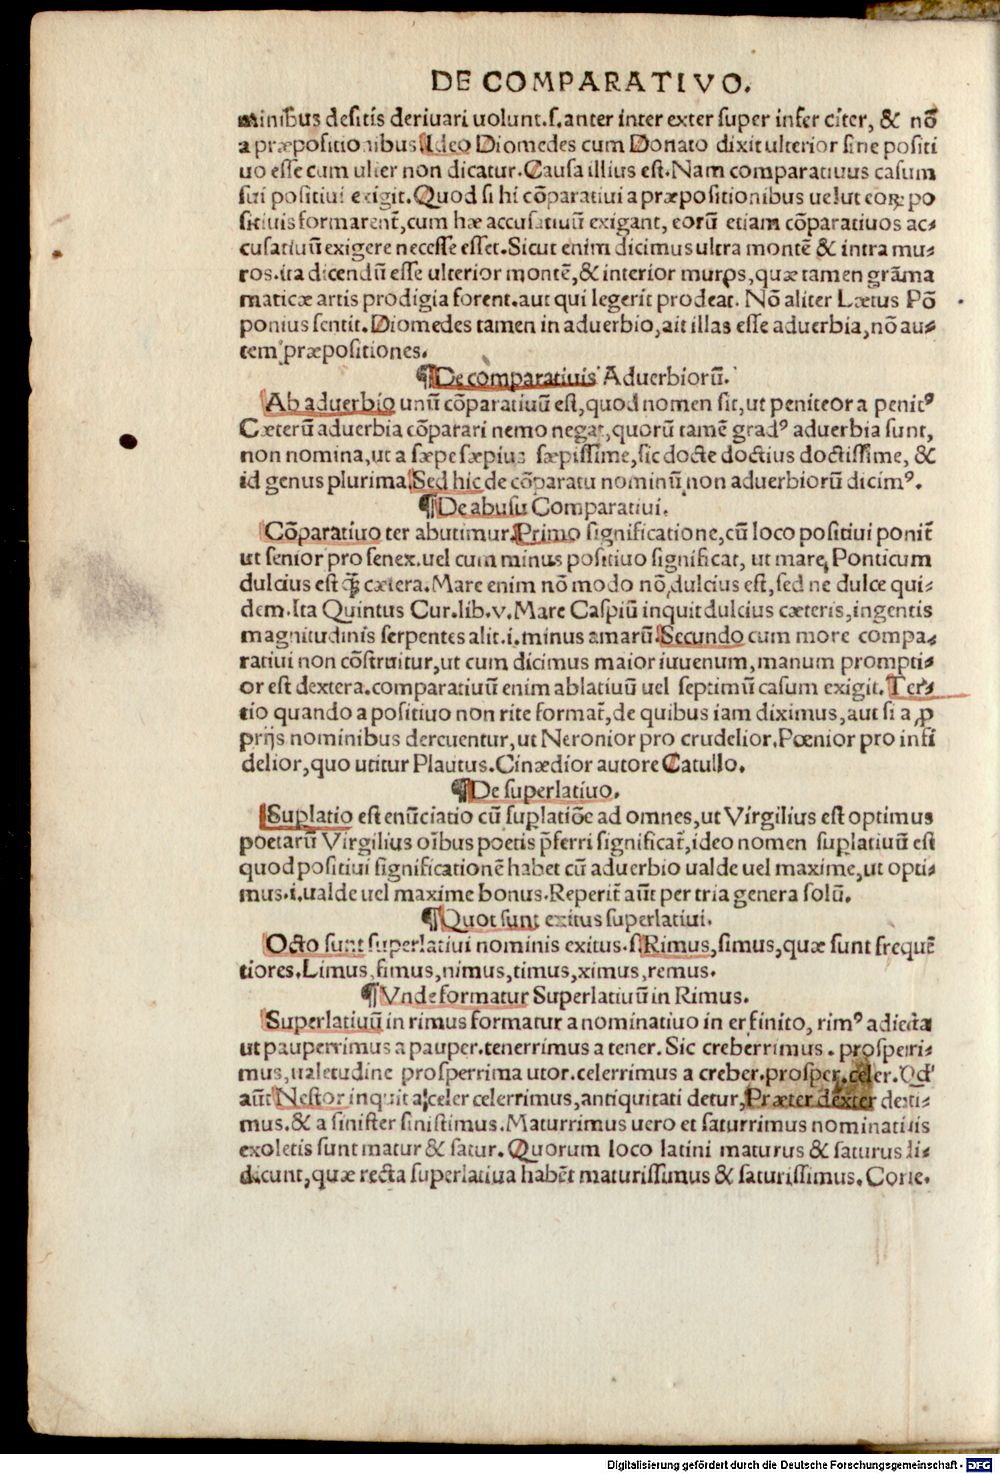 DE COMPARATIVO.
minibus desitis deriuari uolunt.s.anter inter exter super infer citer, & nō
a præpositionibus Ideo Diomedes cum Donato dixit ulterior sine positi
uo esse cum ulter non dicatur. Causa illius est. Nam comparatiuus casum
sui positiui exigit. Quod si hi cōparatiui a præpositionibus uelut eoꝝ po
sitiuis formarent̄, cum hæ accusatiuū exigant, eorū etiam cōparatiuos ac-
cusatiuū exigere necesse esset. Sicut enim dicimus ultra montē & intra mu-
ros. ita dicendū esse ulterior montē, & interior muros, quæ tamen grāma
maticæ artis prodigia forent. aut qui legerit prodeat. Nō aliter Lætus Pō
ponius sentit. Diomedes tamen in aduerbio, ait illas esse aduerbia, nō au-
tem præpositiones.
¶ De comparatiuis Aduerbiorū.
Ab aduerbio unū cōparatiuū est, quod nomen sit, ut penitior a penitꝰ
Cæterū aduerbia cōparari nemo negat, quorū tamē gradꝰ aduerbia sunt,
non nomina, ut a sæpe sæpius sæpissime, sic docte doctius doctissime, &
id genus plurima Sed hic de cōparatu nominū non aduerbiorū dicimꝰ.
¶ De abusu Comparatiui.
Cōparatiuo ter abutimur. Primo significatione, cū loco positiui ponit̄
ut senior pro senex. uel cum minus positiuo significat, ut mare Ponticum
dulcius est q̄ cætera. Mare enim nō modo nō dulcius est, sed ne dulce qui-
dem. Ita Quintus Cur. lib. v. Mare Caspiū inquit dulcius cæteris, ingentis
magnitudinis serpentes alit. i. minus amarū Secundo cum more compa-
ratiui non cōstruitur, ut cum dicimus maior iuuenum, manum prompti-
or est dextera. comparatiuū enim ablatiuū uel septimū casum exigit. Ter-
tio quando a positiuo non rite format̄, de quibus iam diximus, aut si a ꝓ
prijs nominibus dercuentur, ut Neronior pro crudelior. Pœnior pro infi
delior, quo utitur Plautus. Cinædior autore Catullo.
¶ De superlatiuo.
Suplatio est enūciatio cū suplatiōe ad omnes, ut Virgilius est optimus
poetarū Virgilius oībus poetis p̄ferri significat̄, ideo nomen suplatiuū est
quod positiui significationē habet cū aduerbio ualde uel maxime, ut opti-
mus. i. ualde uel maxime bonus. Reperit̄ aūt per tria genera solū.
¶ Quot sunt exitus superlatiui.
Octo sunt superlatiui nominis exitus. s. Rimus, simus, quæ sunt frequē
tiores. Limus, fimus, nimus, timus, ximus, remus.
¶ Vnde formatur Superlatiuū in Rimus.
Superlatiuū in rimus formatur a nominatiuo in er finito, rimꝰ adiecta
ut pauperrimus a pauper. tenerrimus a tener. Sic creberrimus . prosperri-
mus, ualetudine prosperrima utor. celerrimus a creber. prosper. celer. Qd'
aūt Nestor inquit a celer celerrimus, antiquitati detur, Præter dexter dexti-
mus. & a sinister sinistimus. Maturrimus uero et saturrimus nominatiuis
exoletis sunt matur & satur. Quorum loco latini maturus & saturus di-
dicunt, quæ recta superlatiua habēt maturissimus & saturissimus. Corie.
Digitalisierung gefördert durch die Deutsche Forschungsgemeinschaft - DFG